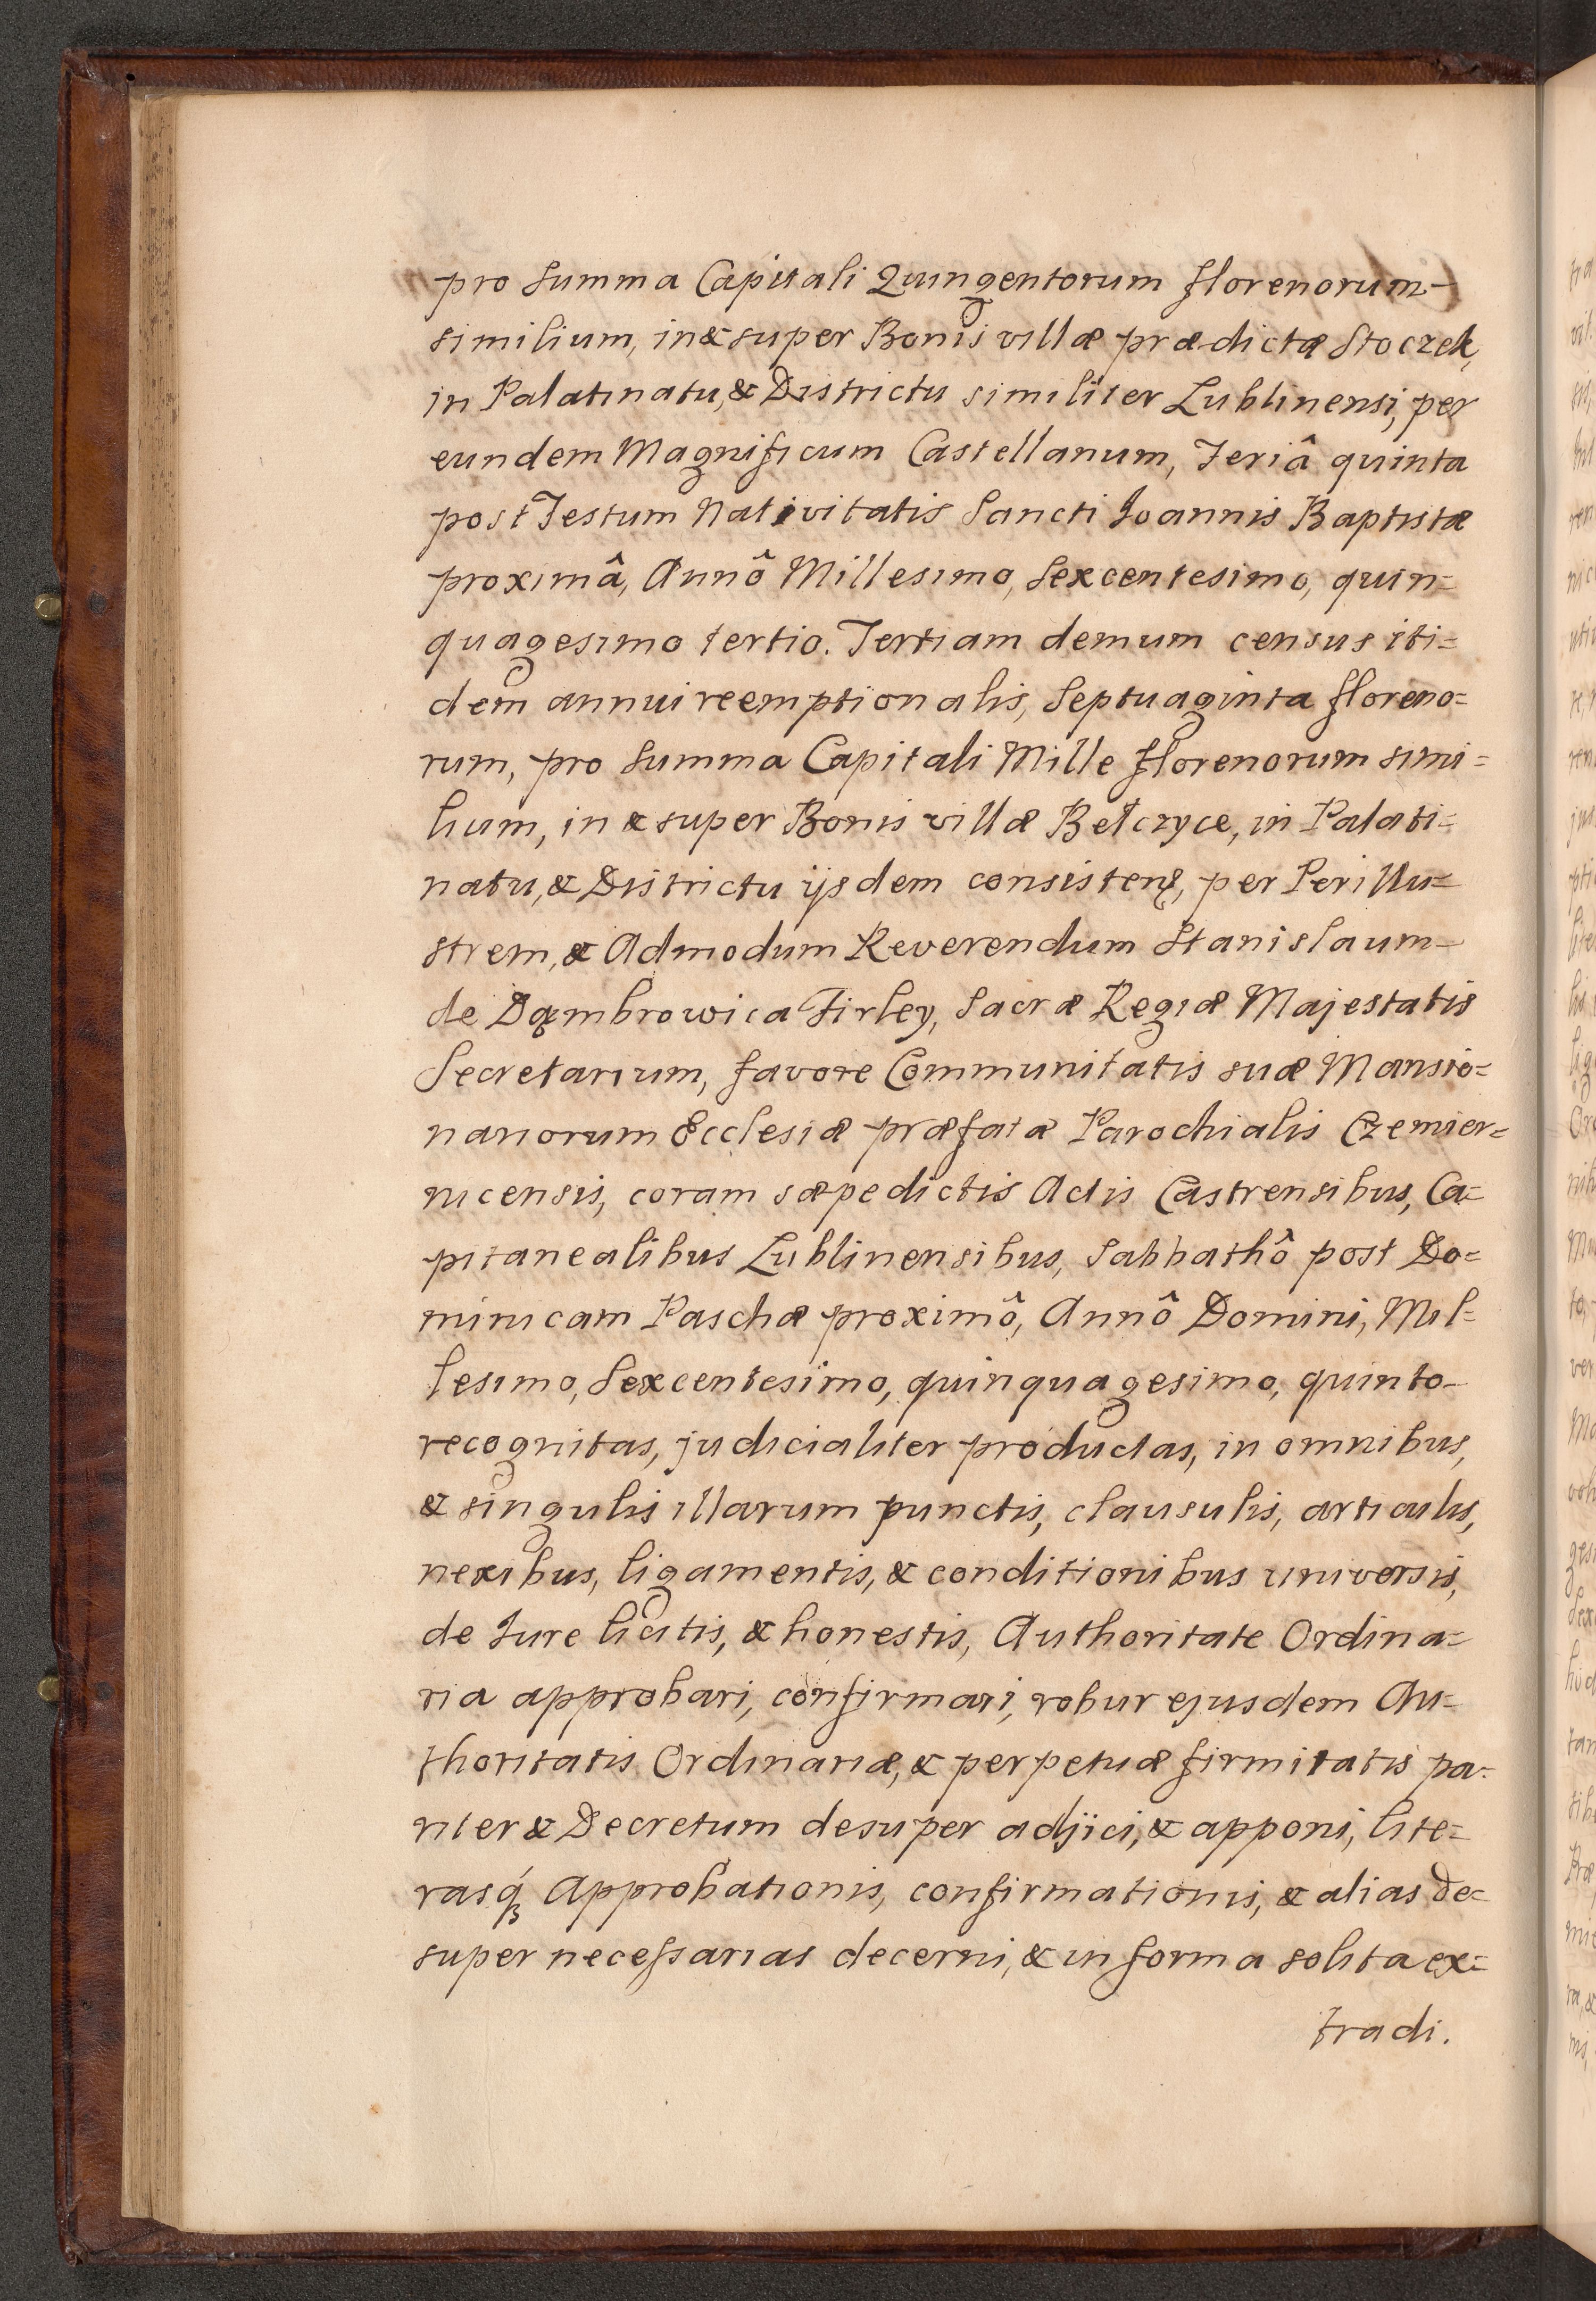 pro Summa Capitali Quingentorum florenorum-
similium, in & super Bonis villæ prædictæ Stoczek,
in Palatinatu, & Districtu similiter Lublinensi, per
eundem Magnificum Castellanum, Feriâ quinta
post Festum Nativitatis Sancti Joannis Baptistæ
proximâ, Annô Millesimo, Sexcentesimo, quin=
quagesimo tertio. Tertiam demum census iti=
dem annui reemptionalis, Septuaginta floreno=
rum, pro Summa Capitali Mille florenorum simi=
lium, in & super Bonis villæ Bełczyce, in Palati=
natu, & Districtu ijsdem consisten̄, per Perillu=
strem, & Admodum Reverendum Stanislaum-
de Dąmbrowica Firley, Sacræ Regiæ Majestatis
Secretarium, favore Communitatis suæ Mansio=
nariorum Ecclesiæ præfatæ Parochialis Czemier=
nicensis, coram sæpedictis Actis Castrensibus, Ca=
pitanealibus Lublinensibus, Sabbathô post Do=
minicam Paschæ proximô, Annô Domini, Mil=
lesimo, Sexcentesimo, quinquagesimo, quinto-
recognitas, judicialiter productas, in omnibus,
& singulis illarum punctis, clausulis, articulis,
nexibus, ligamentis, & conditionibus universis,
de Jure licitis, & honestis, Authoritate Ordina=
ria approbari, confirmari, robur ejusdem Au=
thoritatis Ordinariæ, & perpetuæ firmitatis pa=
riter & Decretum desuper adjici, & apponi, lite=
rasq́ꝫ Approbationis, confirmationis, & alias de=
super neceſsarias decerni, & in forma solita ex=
tradi.